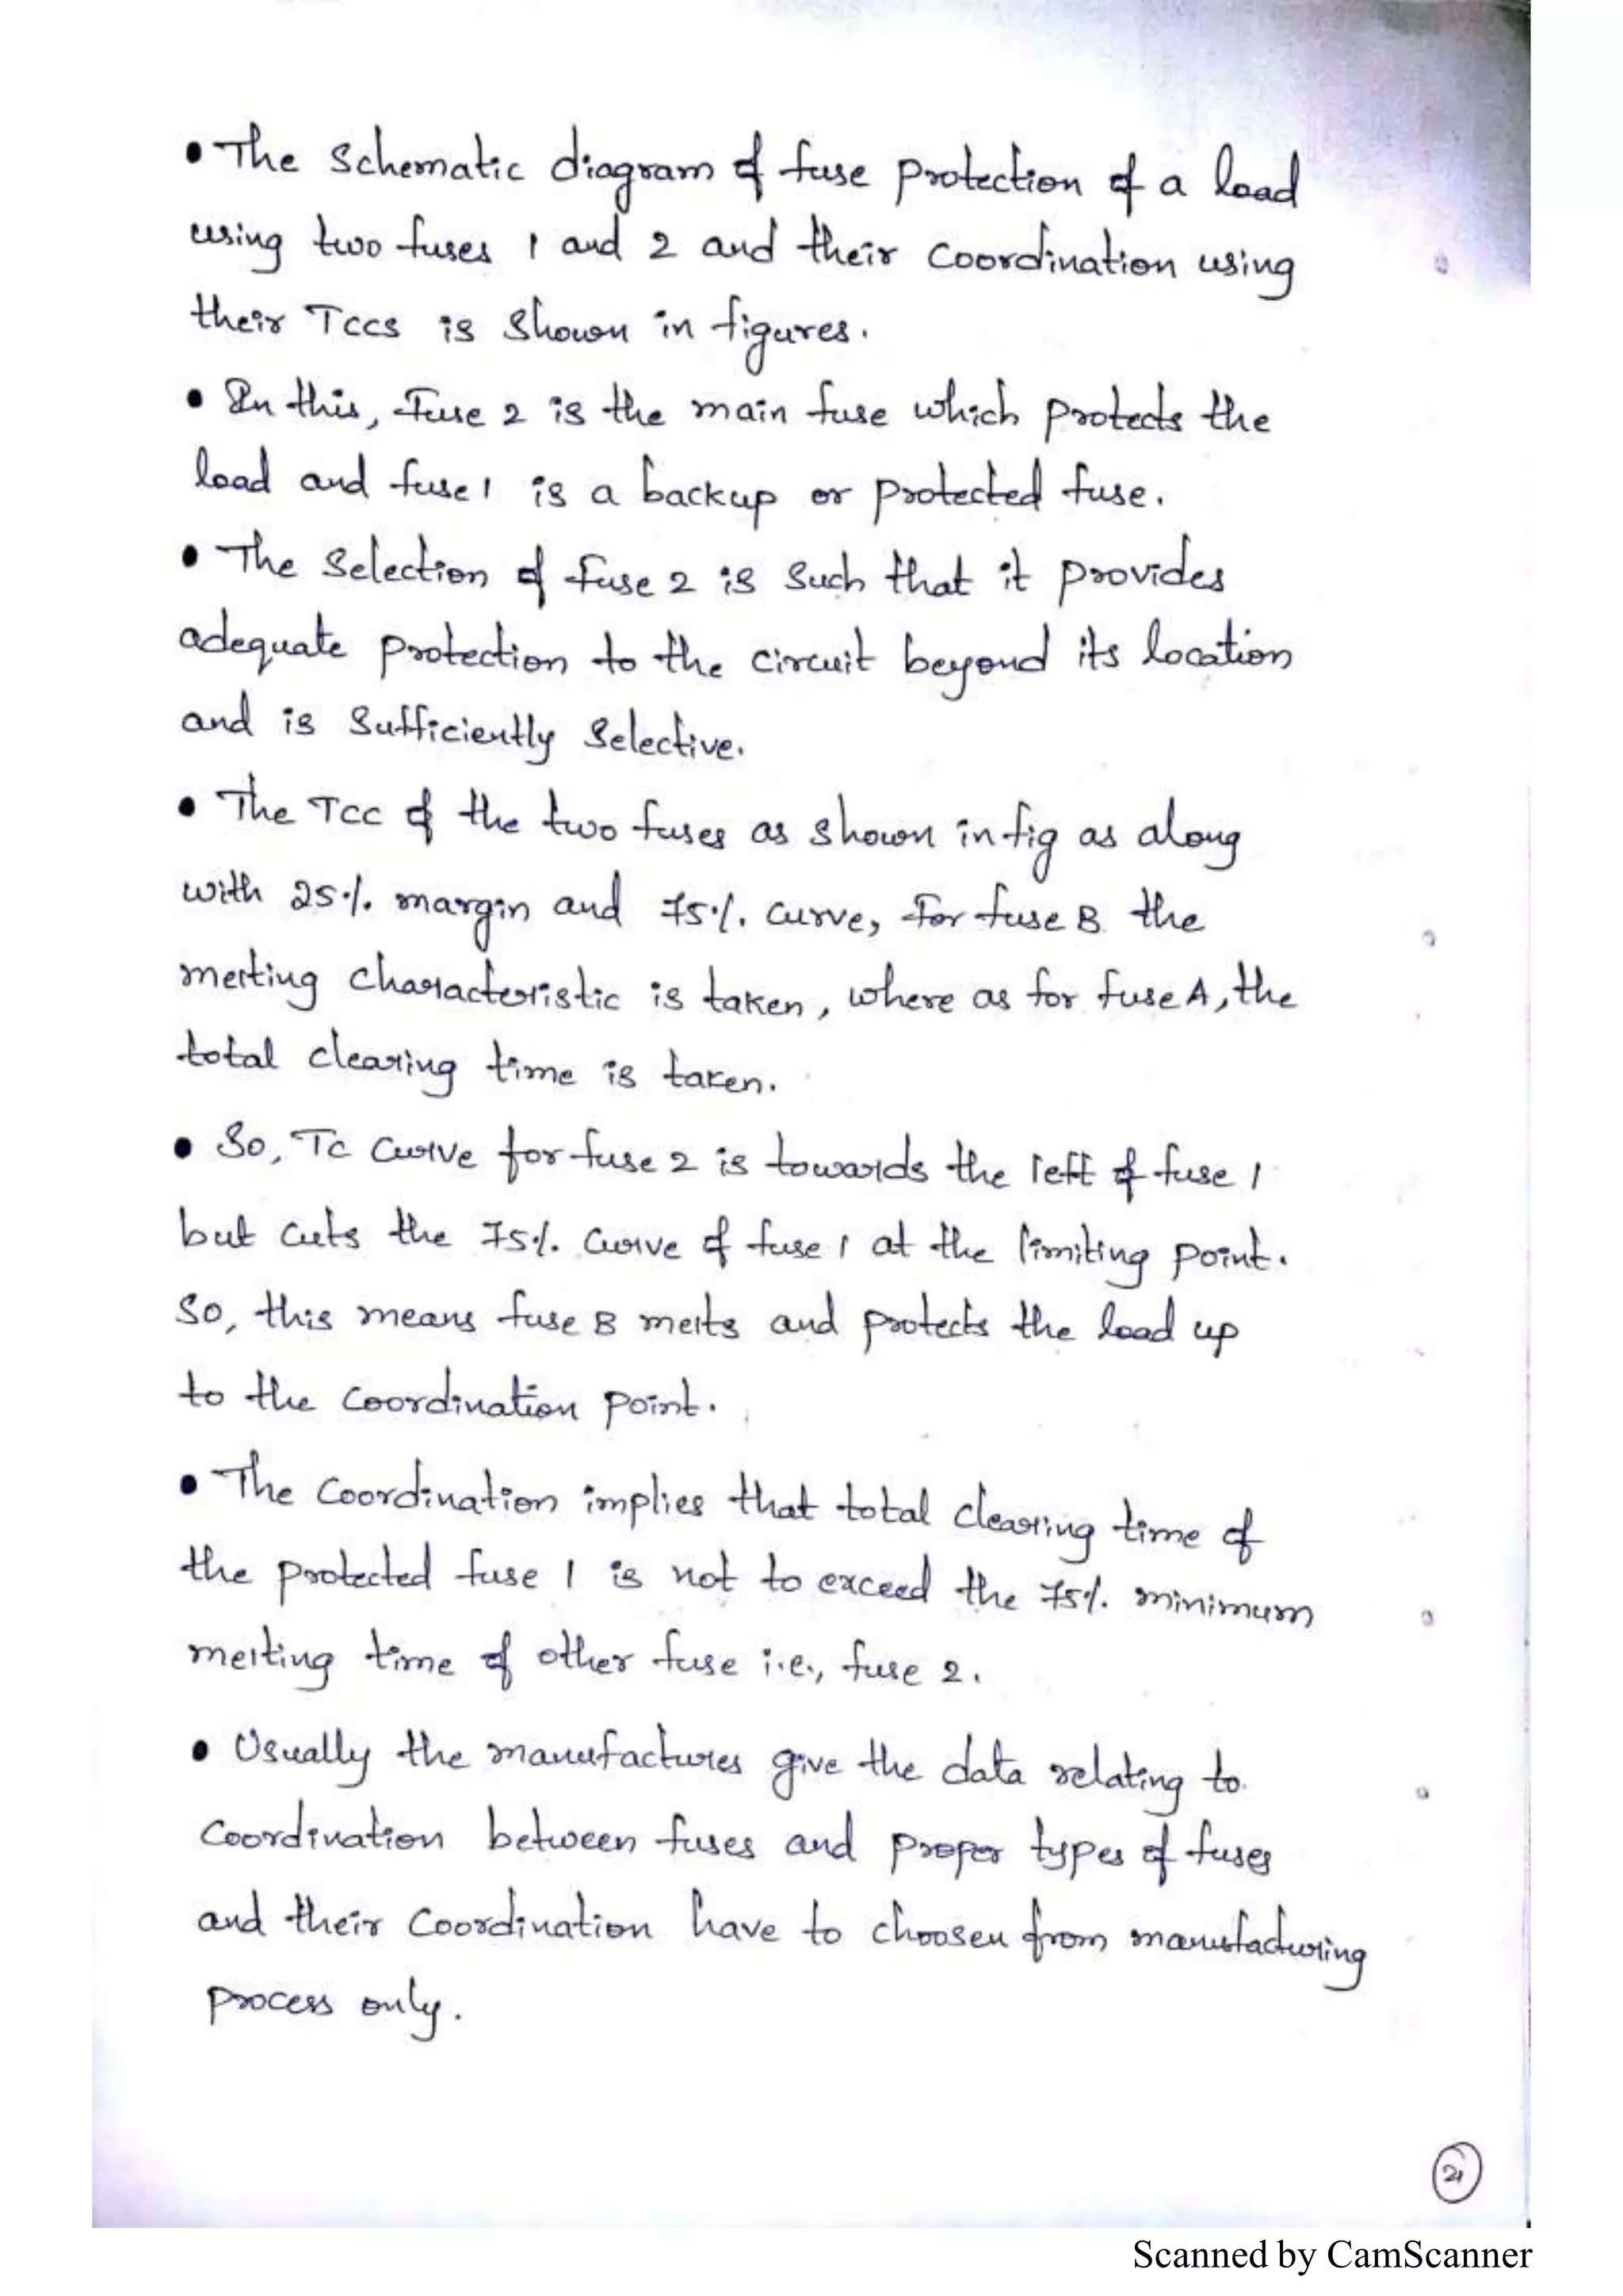 • The Schematic diagram of fuse protection of a load
using two fuses 1 and 2 and their coordination using
their Tccs is Shown in figures.
• In this, Fuse 2 is the main fuse which protects the
load and fuse 1 is a backup or protected fuse.
• The Selection of fuse 2 is such that it provides
adequate protection to the circuit beyond its location
and is Sufficiently Selective.
• The TCC of the two fuses as shown in fig as along
with 25% margin and 75% curve, For fuse B the
melting characteristic is taken, where as for fuse A, the
total clearing time is taken.
• So, TC curve for fuse 2 is towards the left of fuse 1
but cuts the 75% curve of fuse 1 at the limiting point.
So, this means fuse B melts and protects the load up
to the coordination point.
• The coordination implies that total clearing time of
the protected fuse 1 is not to exceed the 75% minimum
melting time of other fuse i.e., fuse 2.
• Usually the manufactures give the data relating to
coordination between fuses and proper types of fuses
and their coordination have to choosen from manufacturing
process only.
21
Scanned by CamScanner